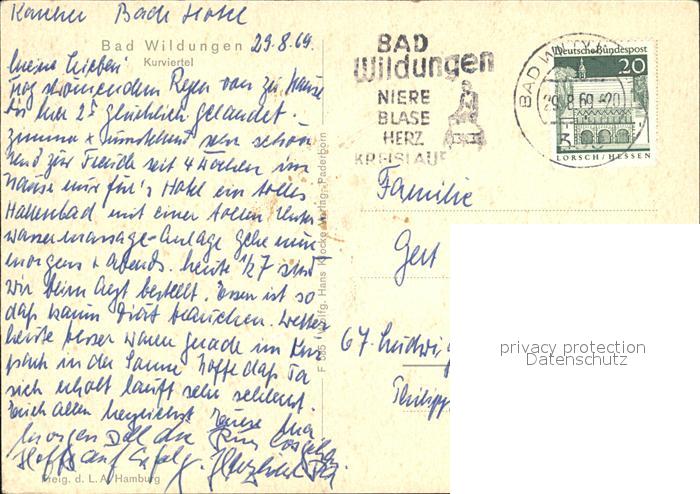 Bade Hotel
Bad Wildungen 29.8.69.
Kurviertel
meine Lieben!
strömendem Regen von zu Hause
bis hier glücklich gelandet.
Zimmer + Zustand sehr schön
und zur Freude seit 4 Wochen im
Hause nur für's Hotel ein tolles
Hallenbad mit einer tollen Unter-
wassermassage-Anlage gehe nun
morgens + abends. heute 1/27 sind
wir beim Arzt bestellt. Essen ist so
daß kaum Diät brauchen. Wetter
heute besser waren gerade im Kur-
park in der Sonne hoffe daß
sich erholt läuft sehr schlecht.
Euch allen herzlichst
morgen
Hoffe auf Erfolg.
Freig. d. L. A. Hamburg
F 585 Wolfg. Hans Klocke Verlag, Paderborn
BAD
Wildungen
NIERE
BLASE
HERZ
KREISLAUF
BAD WILDUNGEN
29.8.69-20
Deutsche Bundespost
20
LORSCH/HESSEN
Familie
Gert
67. Ludwig
Philipp
privacy protection
Datenschutz